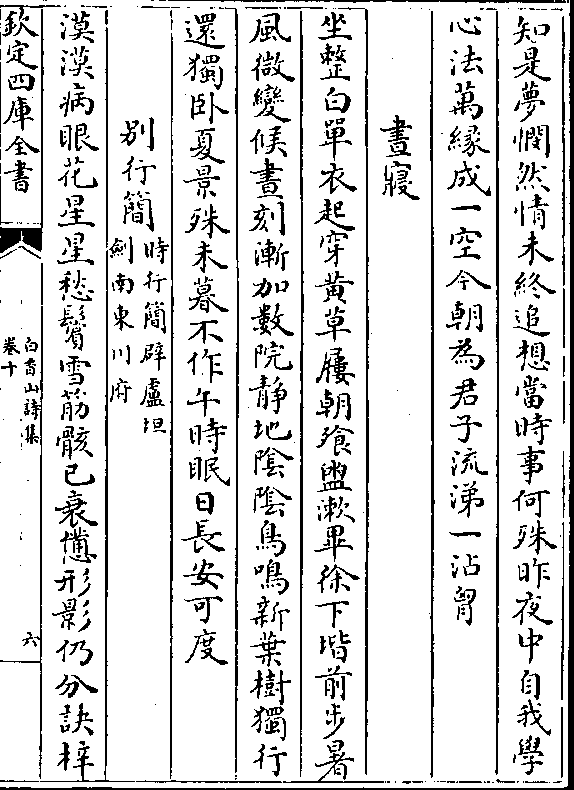 知是夢憫然情未終追想當時事何殊昨夜中自我學
心法萬緣成一空今朝為君子流涕一沾胷
晝寢
坐整白單衣起穿黃草屨朝飱盥漱畢徐下堦前步暑
風微變候晝刻漸加數院靜地隂隂鳥鳴新葉樹獨行
還獨卧夏景殊未暮不作午時眠日長安可度
别行簡
時行簡辟盧坦
劍南東川府
漠漠病眼花星星愁鬢雪筋骸已衰憊形影仍分訣梓
欽定四庫全書
白香山詩集
卷十
六